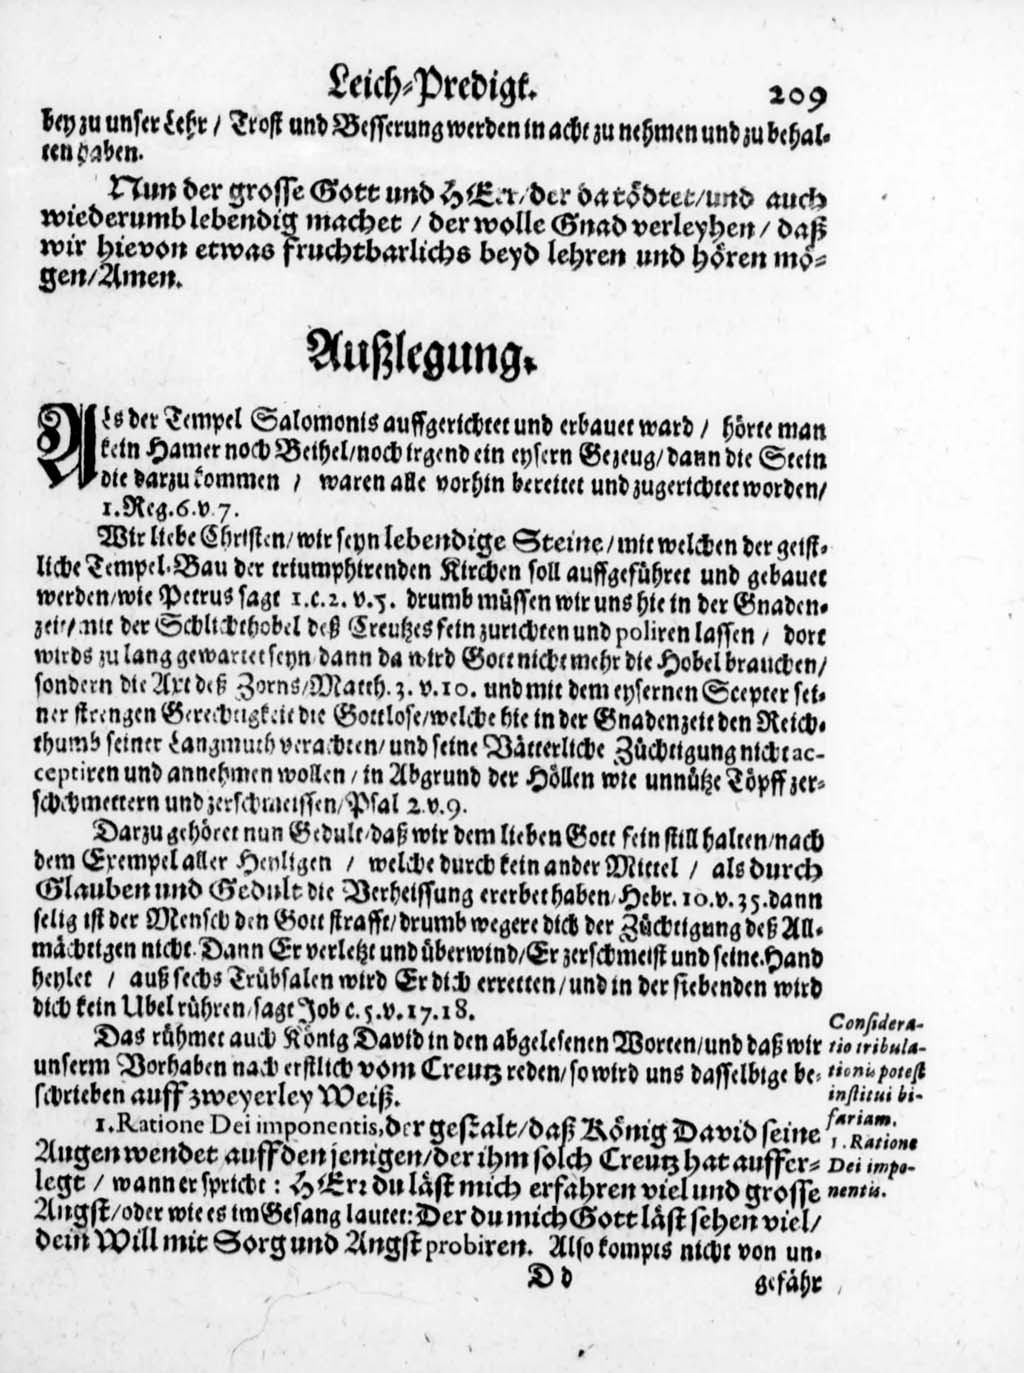 Leich-Predigt. 209
bey zu unser Lehr / Trost und Besserung werden in acht zu nehmen und zu behal-
ten haben.
Nun der grosse Gott und HErr/der da tödtet/und auch
wiederumb lebendig machet / der wolle Gnad verleyhen / daß
wir hievon etwas fruchtbarlichs beyd lehren und hören mö-
gen/Amen.
Außlegung.
Als der Tempel Salomonis auffgerichtet und erbauet ward / hörte man
kein Hamer noch Beihel/noch irgend ein eysern Gezeug/dann die Stein
die darzu kommen / waren alle vorhin bereitet und zugerichtet worden/
1.Reg.6.v.7.
Wir liebe Christen/wir seyn lebendige Steine/mit welchen der geist-
liche Tempel-Bau der triumphirenden Kirchen soll auffgeführet und gebauet
werden/wie Petrus sagt 1.c.2. v.5. drumb müssen wir uns hie in der Gnaden-
zeit/mit der Schlichthobel deß Creutzes fein zurichten und poliren lassen / dort
wirds zu lang gewartet seyn/dann da wird Gott nicht mehr die Hobel brauchen/
sondern die Axt deß Zorns/Matth.3. v.10. und mit dem eysernen Scepter sei-
ner strengen Gerechtigkeit die Gottlose/welche hie in der Gnadenzeit den Reich-
thumb seiner Langmuth verachten/und seine Vätterliche Züchtigung nicht ac-
ceptiren und annehmen wollen/in Abgrund der Höllen wie unnütze Töpff zer-
schchmettern und zerschmeissen/Psal 2.v.9.
Darzu gehöret nun Gedult/daß wir dem lieben Gott fein still halten/nach
dem Exempel aller Heyligen / welche durch kein ander Mittel / als durch
Glauben und Gedult die Verheissung ererbet haben/Hebr.10.v.35.dann
selig ist der Mensch den Gott strafft/drumb wegere dich der Züchtigung deß All-
mächtigen nicht. Dann Er verletzt und überwind/Er zerschmeist und seine Hand
heylet / auß sechs Trübsalen wird Er dich erretten/und in der siebenden wird
dich kein Ubel rühren/sagt Job c.5.v.17.18.
Das rühmet auch König David in den abgelesenen Worten/und daß wir
unserm Vorhaben nach erstlich vom Creutz reden/so wird uns dasselbige be-
schrieben auff zweyerley Weiß.
1.Ratione Dei imponentis,der gestalt/daß König David seine
Augen wendet auff den jenigen/der ihm solch Creutz hat auffer-
legt / wann er spricht: HErr du läst mich erfahren viel und grosse
Angst/oder wie es im Gesang lautet:Der du mich Gott läst sehen viel/
dein Will mit Sorg und Angst probiren. Also kompts nicht von un-
Considera-
tio tribula-
tionis potest
institui bi-
fariam.
1. Ratione
Dei impo-
nentis.
D d gefähr